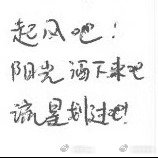 起风吧！
阳光洒下来吧
流星划过吧！